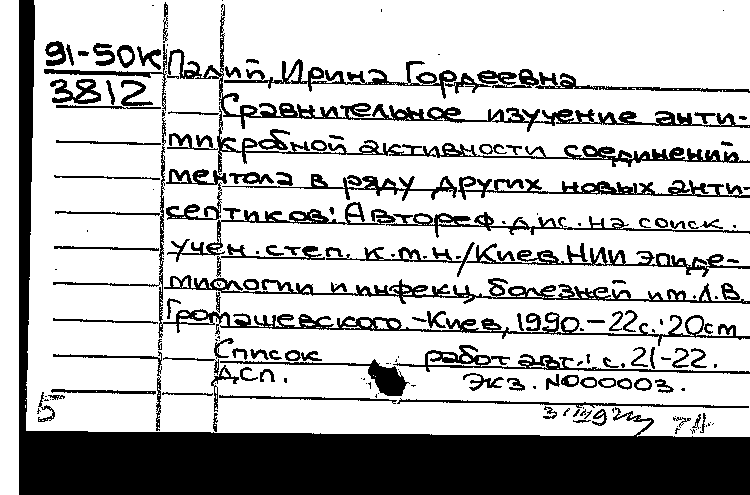 91-50К Палий, Ирина Гордеевна
3812
Сравнительное изучение анти-
микробной активности соединений
ментола в ряду других новых анти-
септиков: Автореф. дис. на соиск.
учен. степ. к.м.н./Киев. НИИ эпиде-
миологии и инфекц. болезней им. Л.В.
Громашевского.-Киев, 1990.-22с.; 20см
Список работ авт.: с.21-22.
Дсп. Экз. N000003.
5